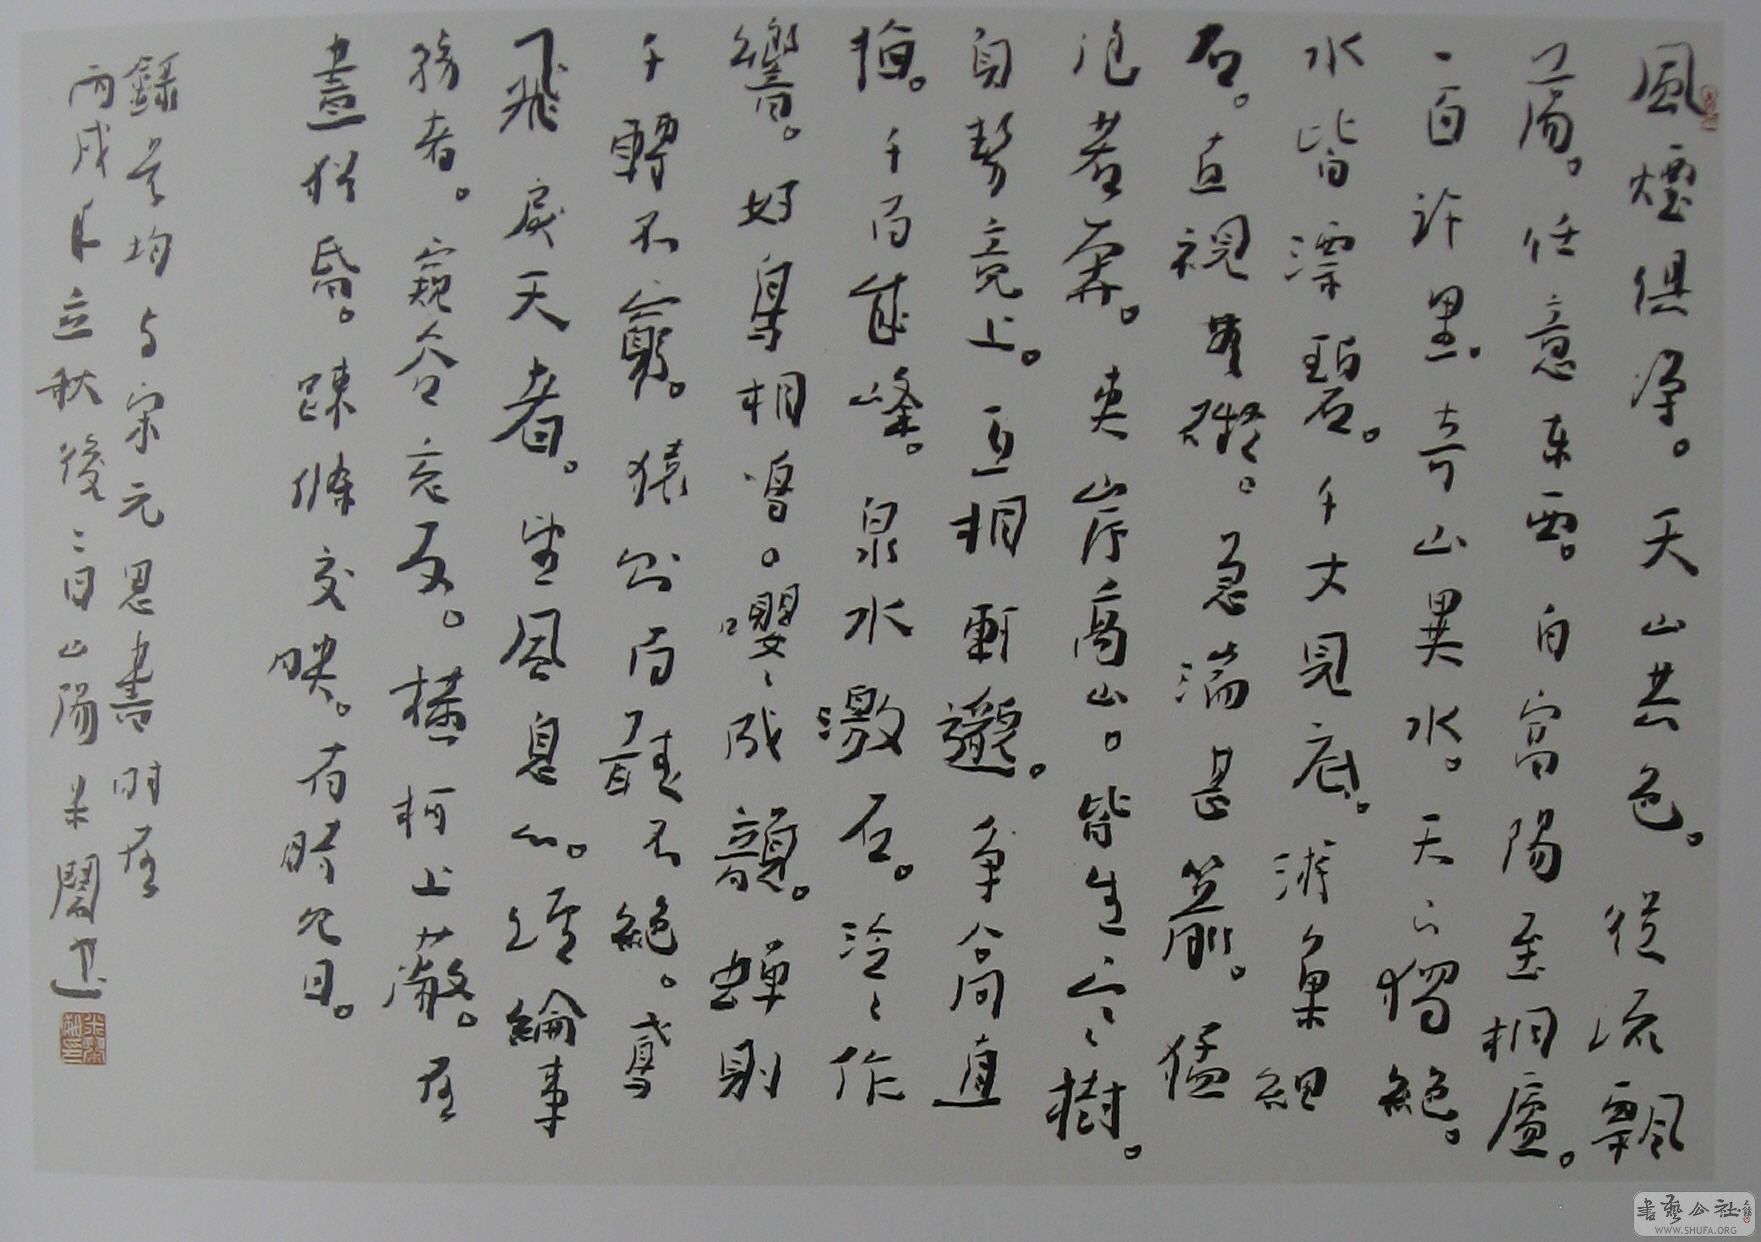 風煙俱淨。天山共色。從流飄
蕩。任意東西。自富陽至桐廬。
一百許里。奇山異水。天下獨絕。
水皆漂碧。千丈見底。游魚細
石。直視無礙。急湍甚箭。猛
浪若奔。夾岸高山。皆生寒樹。
負勢竞上。互相軒邈。爭高直
指。千百成峰。泉水激石。泠〻作
響。好鳥相鳴。嚶〻成韻。蟬則
千轉不窮。猿則百聽不絕。鳶
飛戾天者。望風息心。經綸事
務者。窺谷忘反。橫柯上蔽。在
晝猶昏。疎條交映。有時見日。
錄吳均与宋元思書时在
丙戌年立秋後二日山陽
書藝公社
WWW.SHUFA.ORG